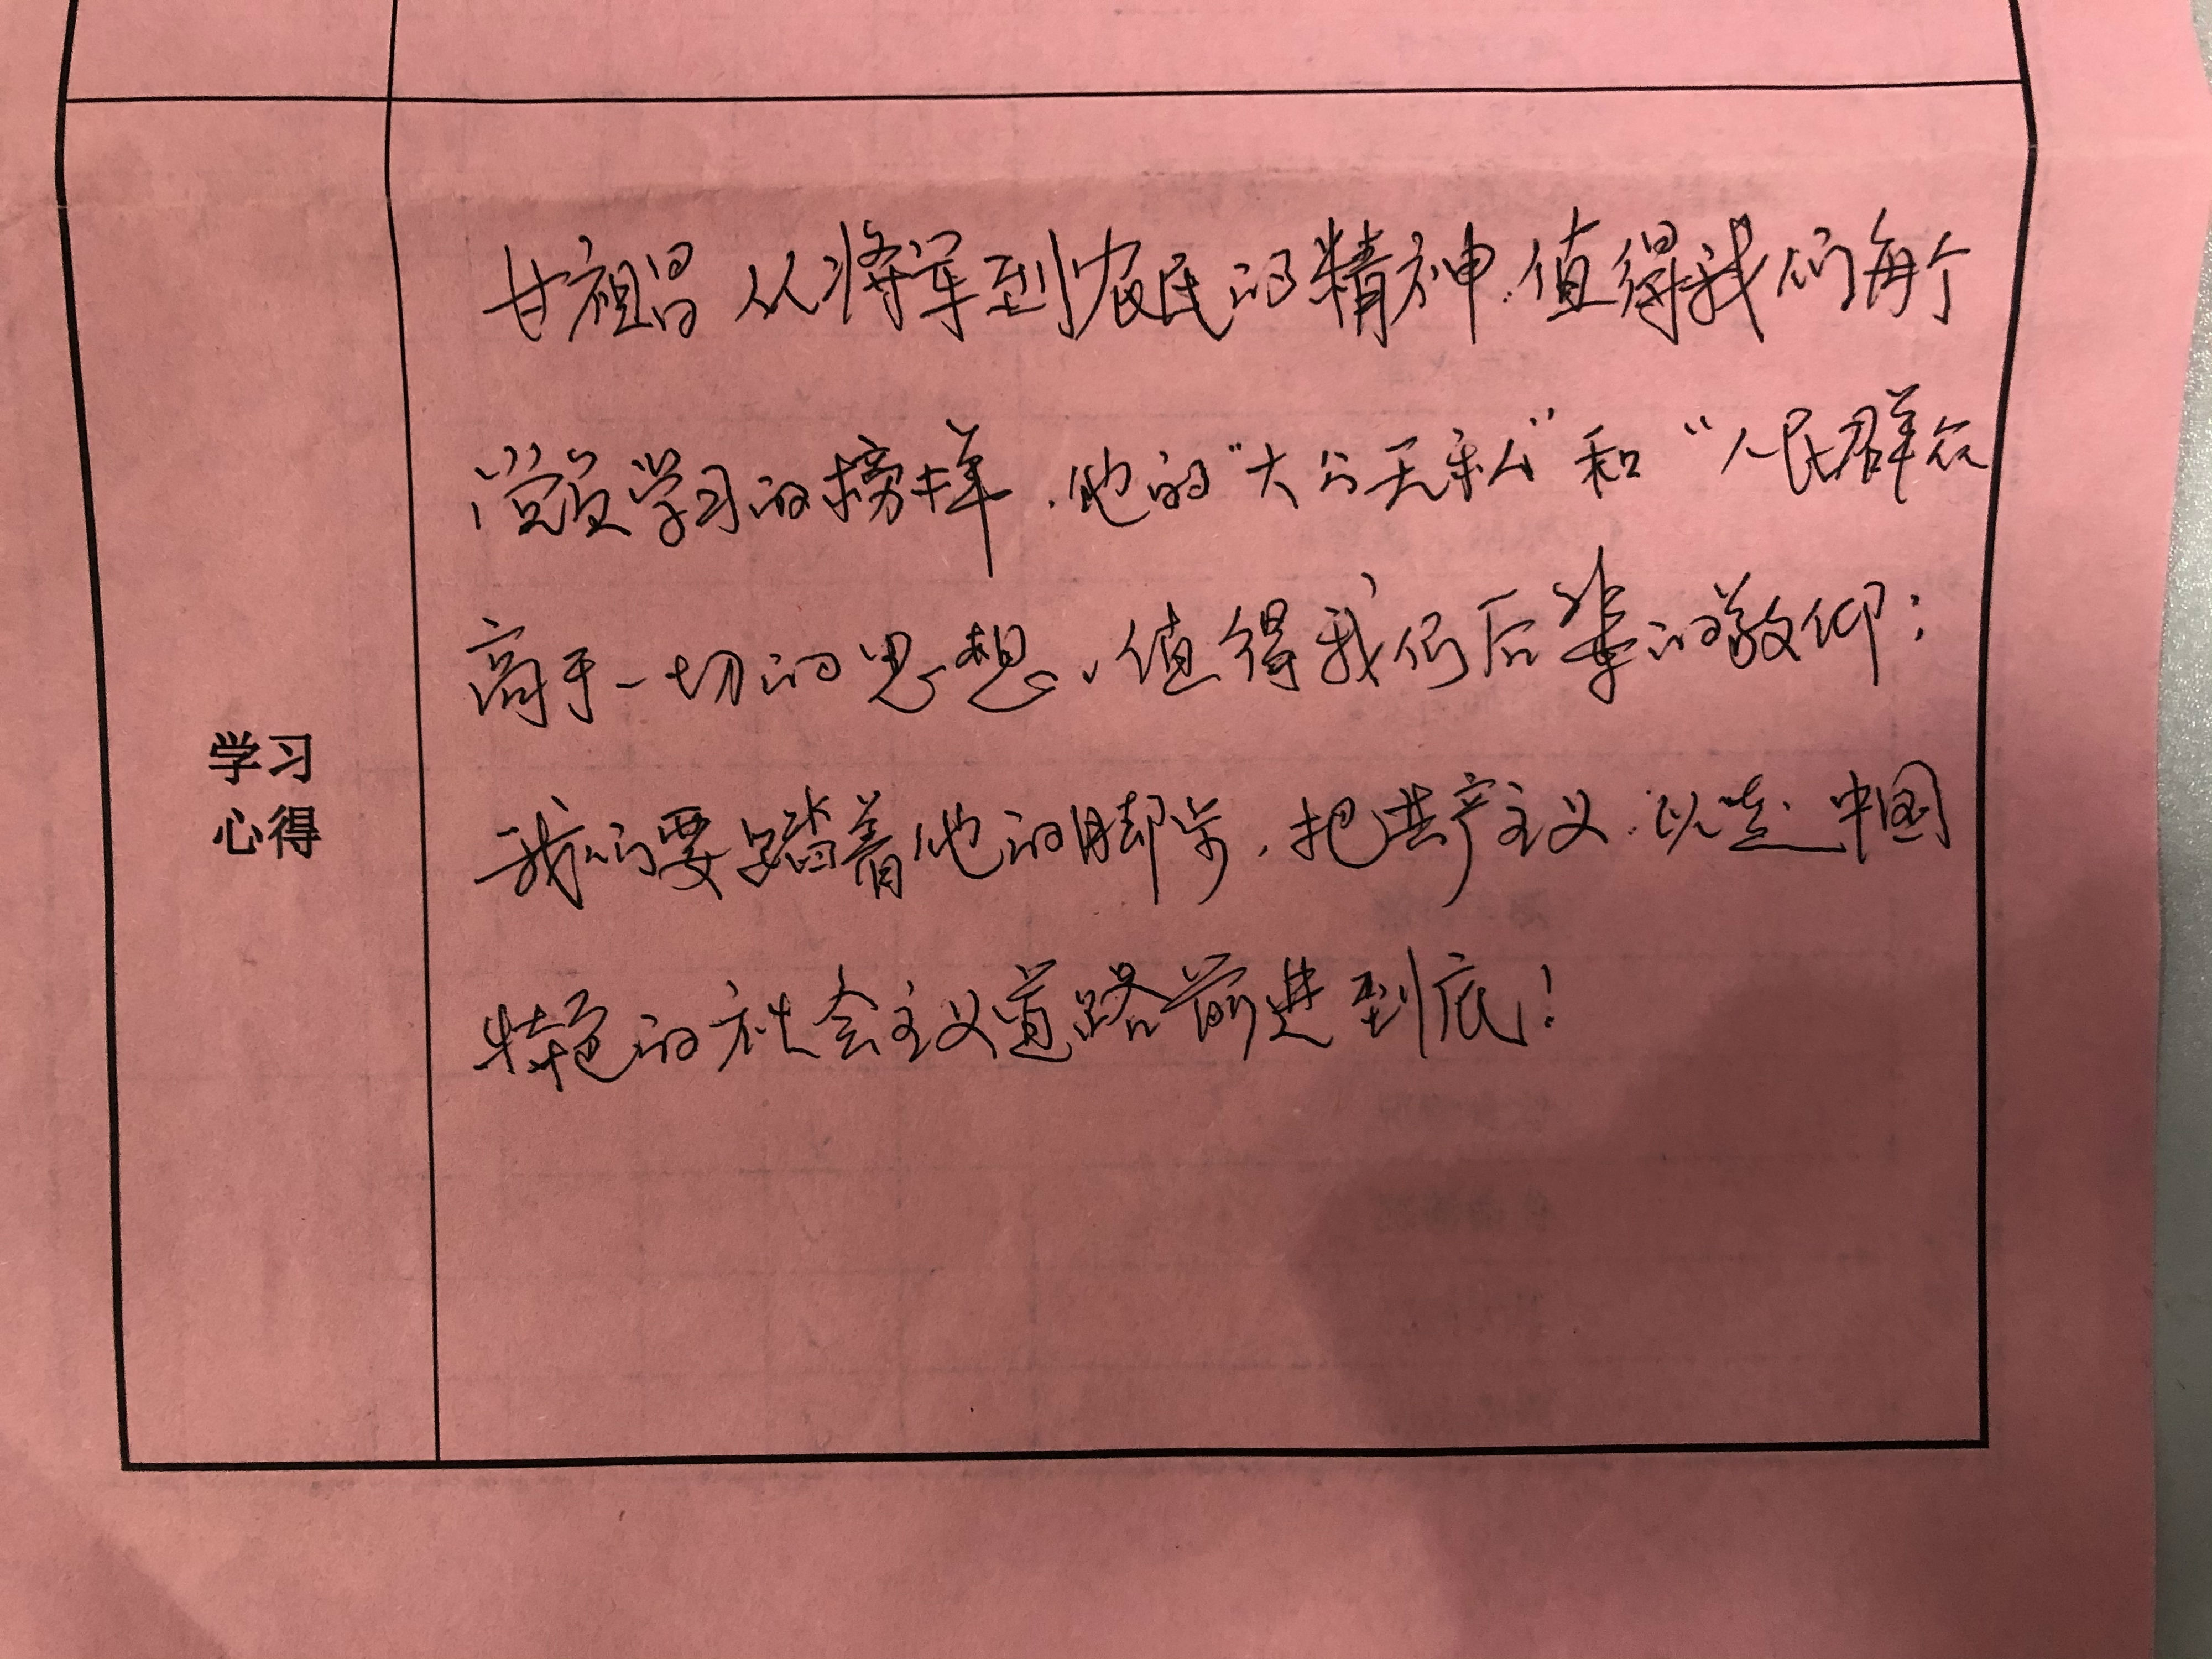 学习
心得
甘祖昌从将军到农民的精神，值得我们每个
党员学习的榜样，他的“大公无私”和“人民群众
高于一切的思想，值得我们后辈的敬仰；
我们要踏着他的脚步，把共产主义，以走中国
特色的社会主义道路前进到底！